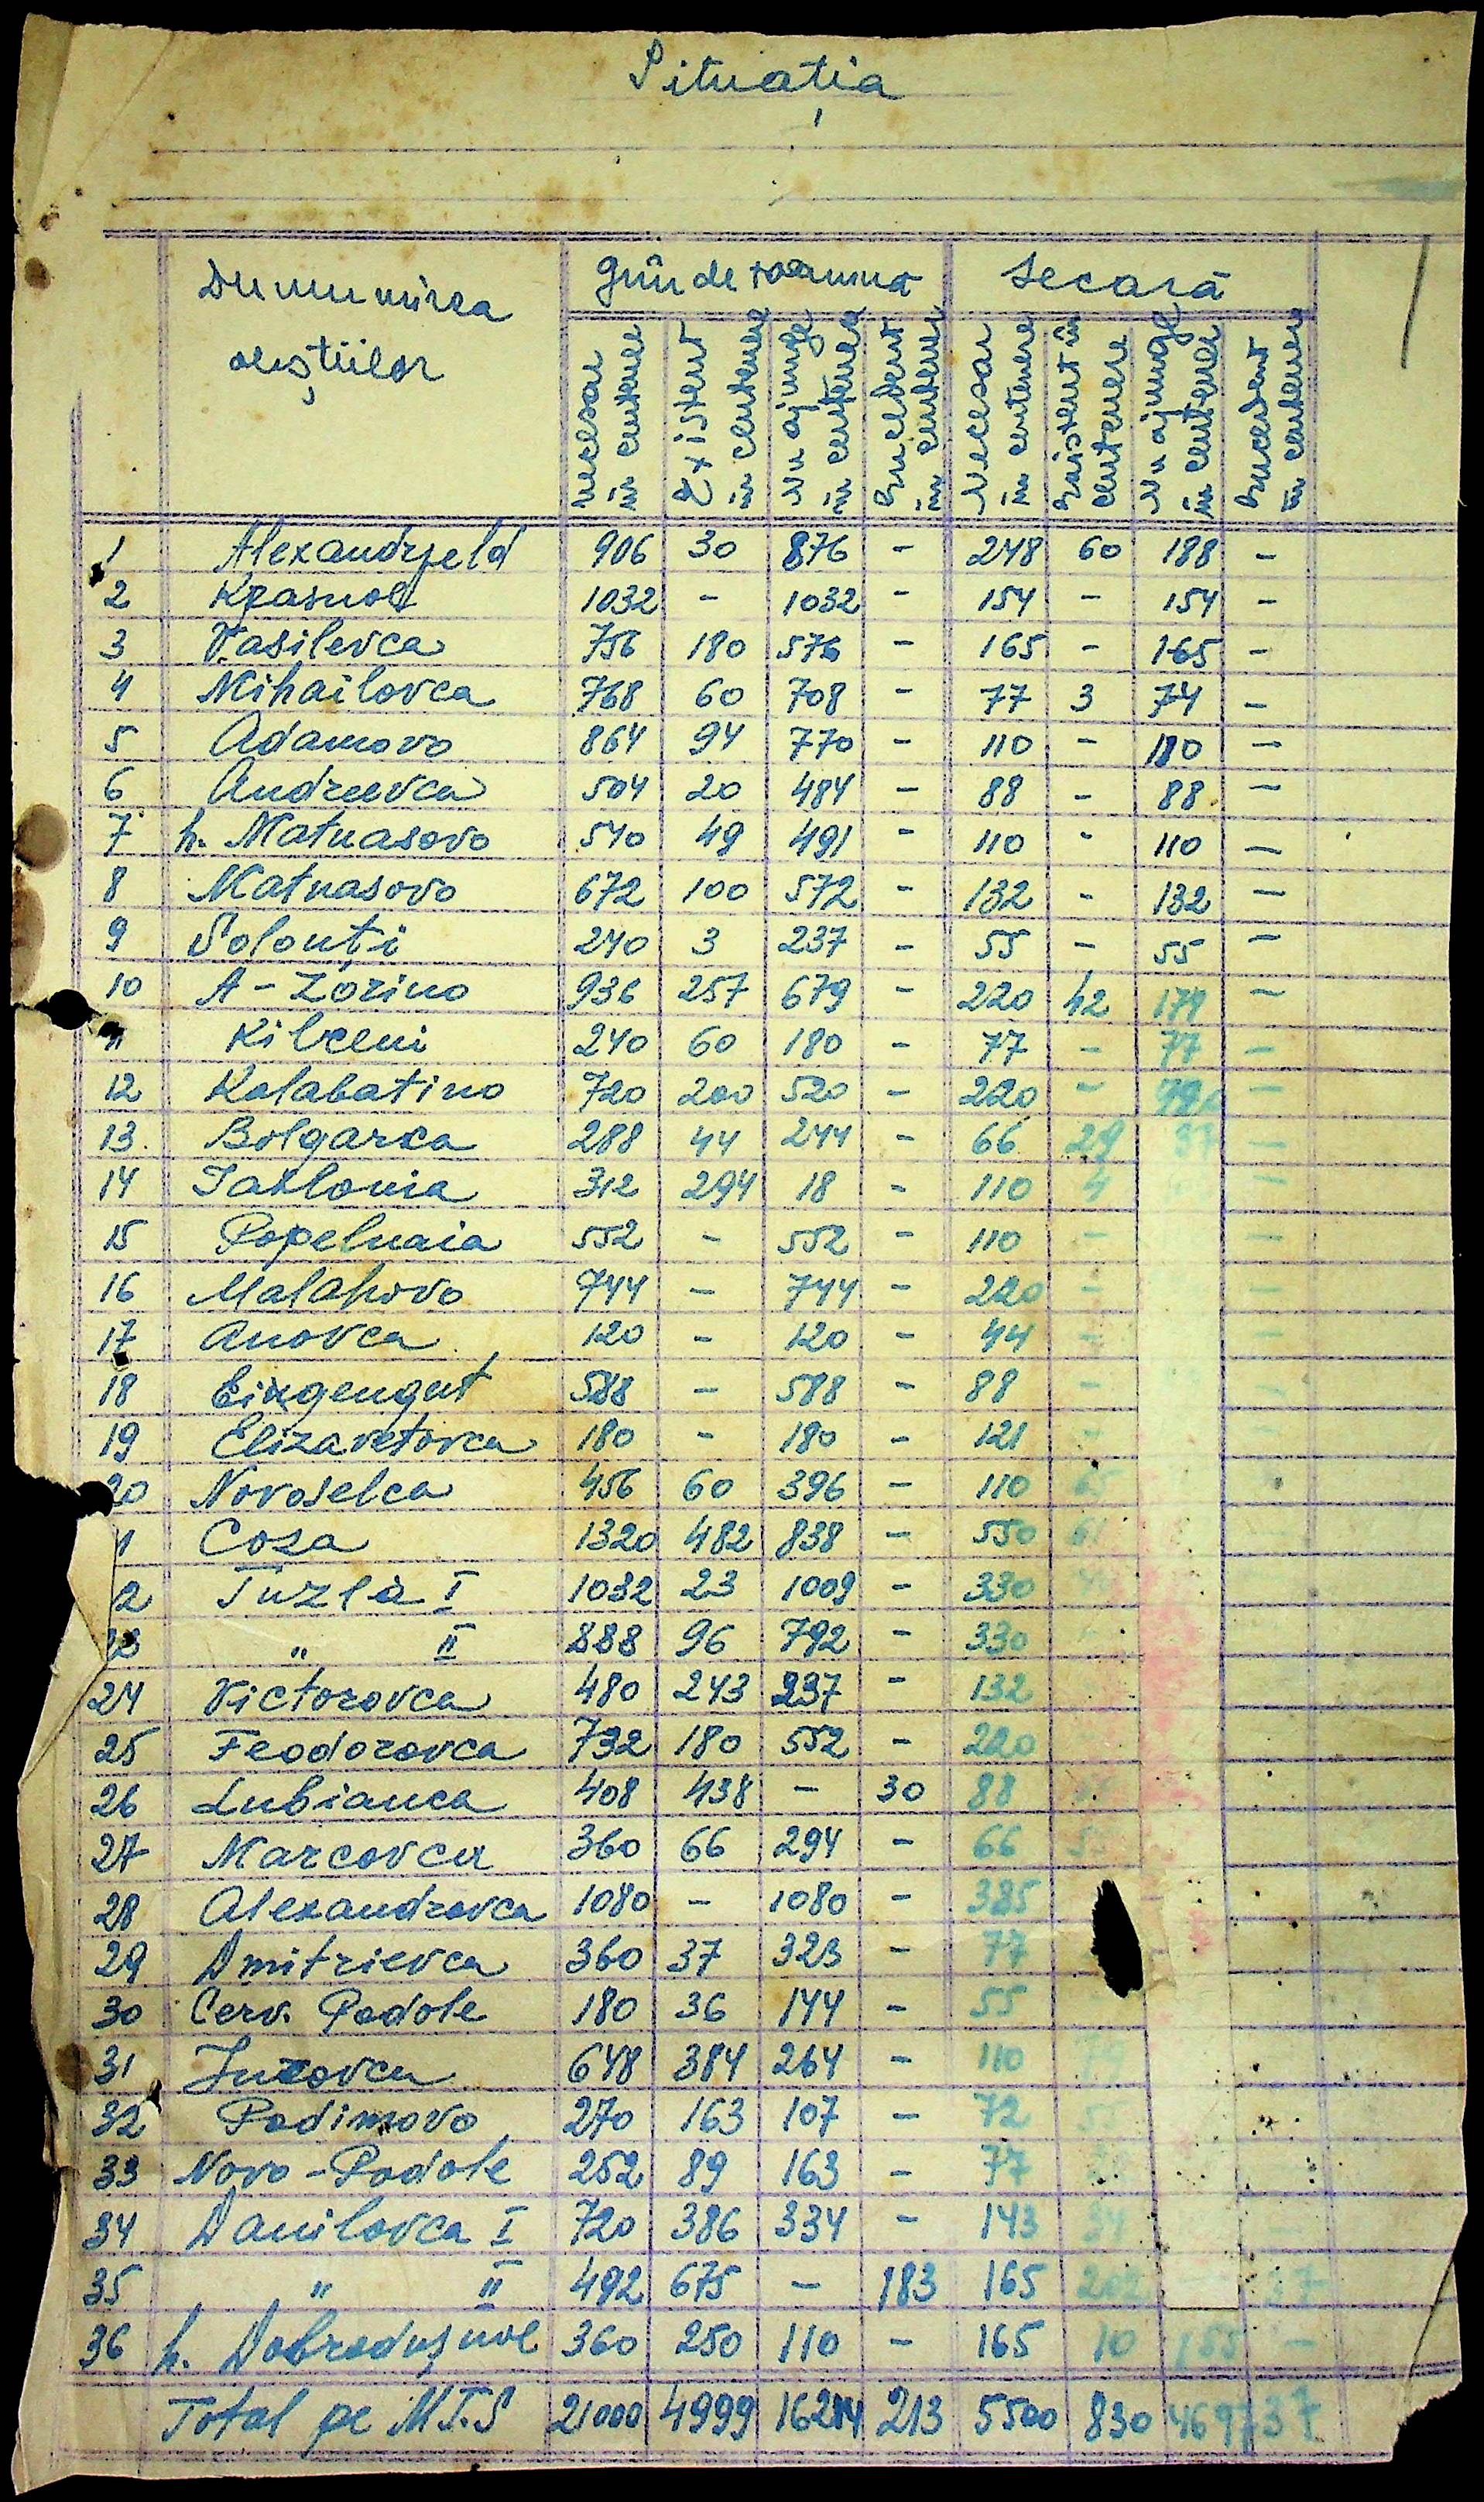 Situația
Denumirea
obștiilor
Grîu de toamnă
Secară
Necesar in centenere
Existent in centenere
Nu ajunge in centenere
Excedent in centenere
Necesar in centenere
Existent în centenere
Nu ajunge in centenere
Excedent in centenere
1 Alexandrfeld 906 30 876 - 248 60 188 -
2 Krasnoe 1032 - 1032 - 154 - 154 -
3 Vasilevca 756 180 576 - 165 - 165 -
4 Mihailovca 768 60 708 - 77 3 74 -
5 Adamovo 864 94 770 - 110 - 110 -
6 Andreevca 504 20 484 - 88 - 88 -
7 h. Matuasovo 540 49 491 - 110 - 110 -
8 Matuasovo 672 100 572 - 132 - 132 -
9 Solonți 240 3 237 - 55 - 55 -
10 A-Zorino 936 257 679 - 220 42 179 -
11 Kilceni 240 60 180 - 77 - 77 -
12 Kalabatino 720 200 520 - 220 - -
13. Bolgarca 288 44 244 - 66 29 37 -
14 Iablonia 312 294 18 - 110 4 -
15 Popelnaia 552 - 552 - 110 - -
16 Malahovo 744 - 744 - 220 - -
17 Anovca 120 - 120 - 44 - -
18 Eingengut 588 - 588 - 88 -
19 Elizavetovca 180 - 180 - 121 -
20 Novoselca 456 60 396 - 110 65
1 Cosa 1320 482 838 - 550 61
2 Tuzla I 1032 23 1009 - 330
23 " II 888 96 792 - 330
24 Victorovca 480 243 237 - 132
25 Feodorovca 732 180 552 - 220
26 Lubianca 408 438 - 30 88
27 Marcovca 360 66 294 - 66
28 Alexandrovca 1080 - 1080 - 385
29 Dmitrievca 360 37 323 - 77
30 Cerv. Podole 180 36 144 - 55
31 Juzovca 648 384 264 - 110
32 Podimovo 270 163 107 - 72
33 Novo-Podole 252 89 163 - 77
34 Danilovca I 720 386 334 - 143 34
35 " II 492 675 - 183 165 202 37
36 h. Dobrodușnoe 360 250 110 - 165 10 155 -
Total pe M.T.S 21000 4999 16214 213 5500 830 4697 37